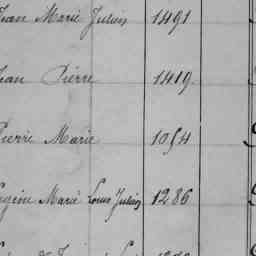 Jean Marie Julien 1491
Jean Pierre 1419
Pierre Marie 1054
Eugène Marie Louis Julien 1286